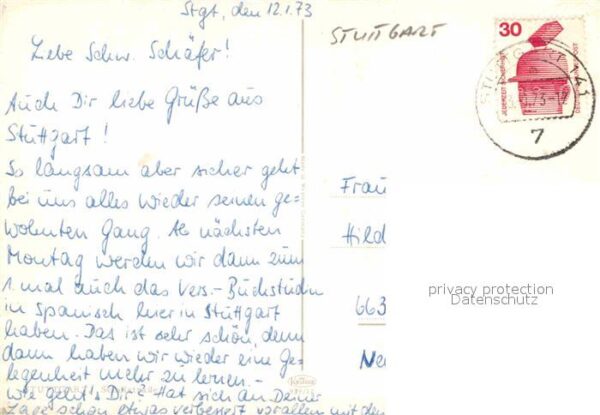 Stgt, den 12.1.73
STUTTGART
Liebe Schw. Schäfer!
Auch Dir liebe Grüße aus
Stuttgart!
So langsam aber sicher geht
bei uns alles wieder seinen ge=
wohnten Gang. Ab nächsten
Montag werden wir dann zum
1. mal auch das Vers.-Buchstudium
in Spanisch hier in Stuttgart
haben. Das ist sehr schön, denn
dann haben wir wieder eine Ge-
legenheit mehr zu lernen.-
Wie geht's Dir? Hat sich an Deiner
Lage schon etwas verbessert vorallem mit der
30
7
Frau
Hild
663
privacy protection
Datenschutz